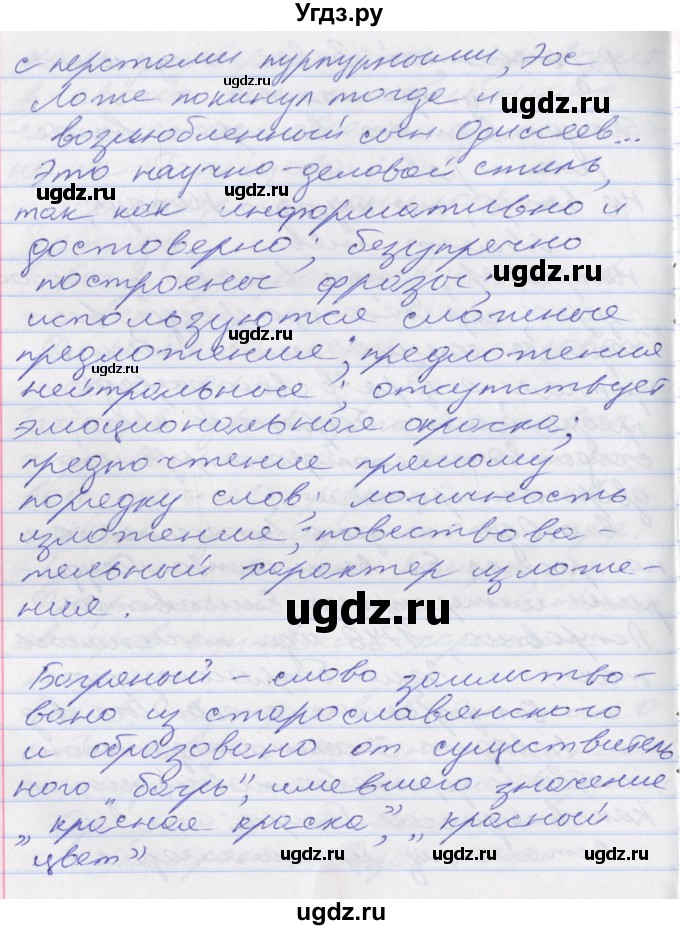 Угдз.ру
с перстами пурпурными, Эос
ugdz.ru ugdz.ru
Ложе покинул тогда и
возлюбленный сын Одиссеев...
Это научно-деловой стиль,
ugdz.ru ugdz.ru
так как информативно и
достоверно; безупречно
построены фразы;
ugdz.ru
используются сложные
ugdz.ru
предложения; предложения
нейтральные; отсутствует
эмоциональная окраска;
предпочтение прямому
порядку слов; логичность
изложения; повествова-
тельный характер изложе-
ния.
ugdz.ru
Багряный - слово заимство-
вано из старославянского
и образовано от существитель
ного "багръ", имевшего значение
„красная краска”, „красный
цвет”
ugdz.ru ugdz.ru ugdz.ru
ugdz.ru